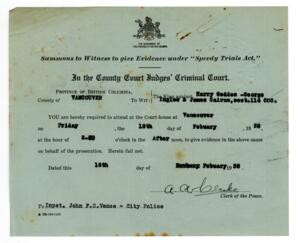 Summons to Witness to give Evidence under "Speedy Trials Act."
In the County Court Judges' Criminal Court.
PROVINCE OF BRITISH COLUMBIA,
County of VANCOUVER
TO WIT:
Harry Geddes -George
Inglee & James Cairns, sect.114 CCC.
YOU are hereby required to attend at the Court-house at Vancouver
on Friday the 18th day of Febuary 1938
at the hour of 2-30 o'clock in the After noon, to give evidence in the above case
on behalf of the prosecution. Herein fail not.
Dated this 16th day of Febuary 1938
Clerk of the Peace.
To Inspt. John F.C.Vance - City Police